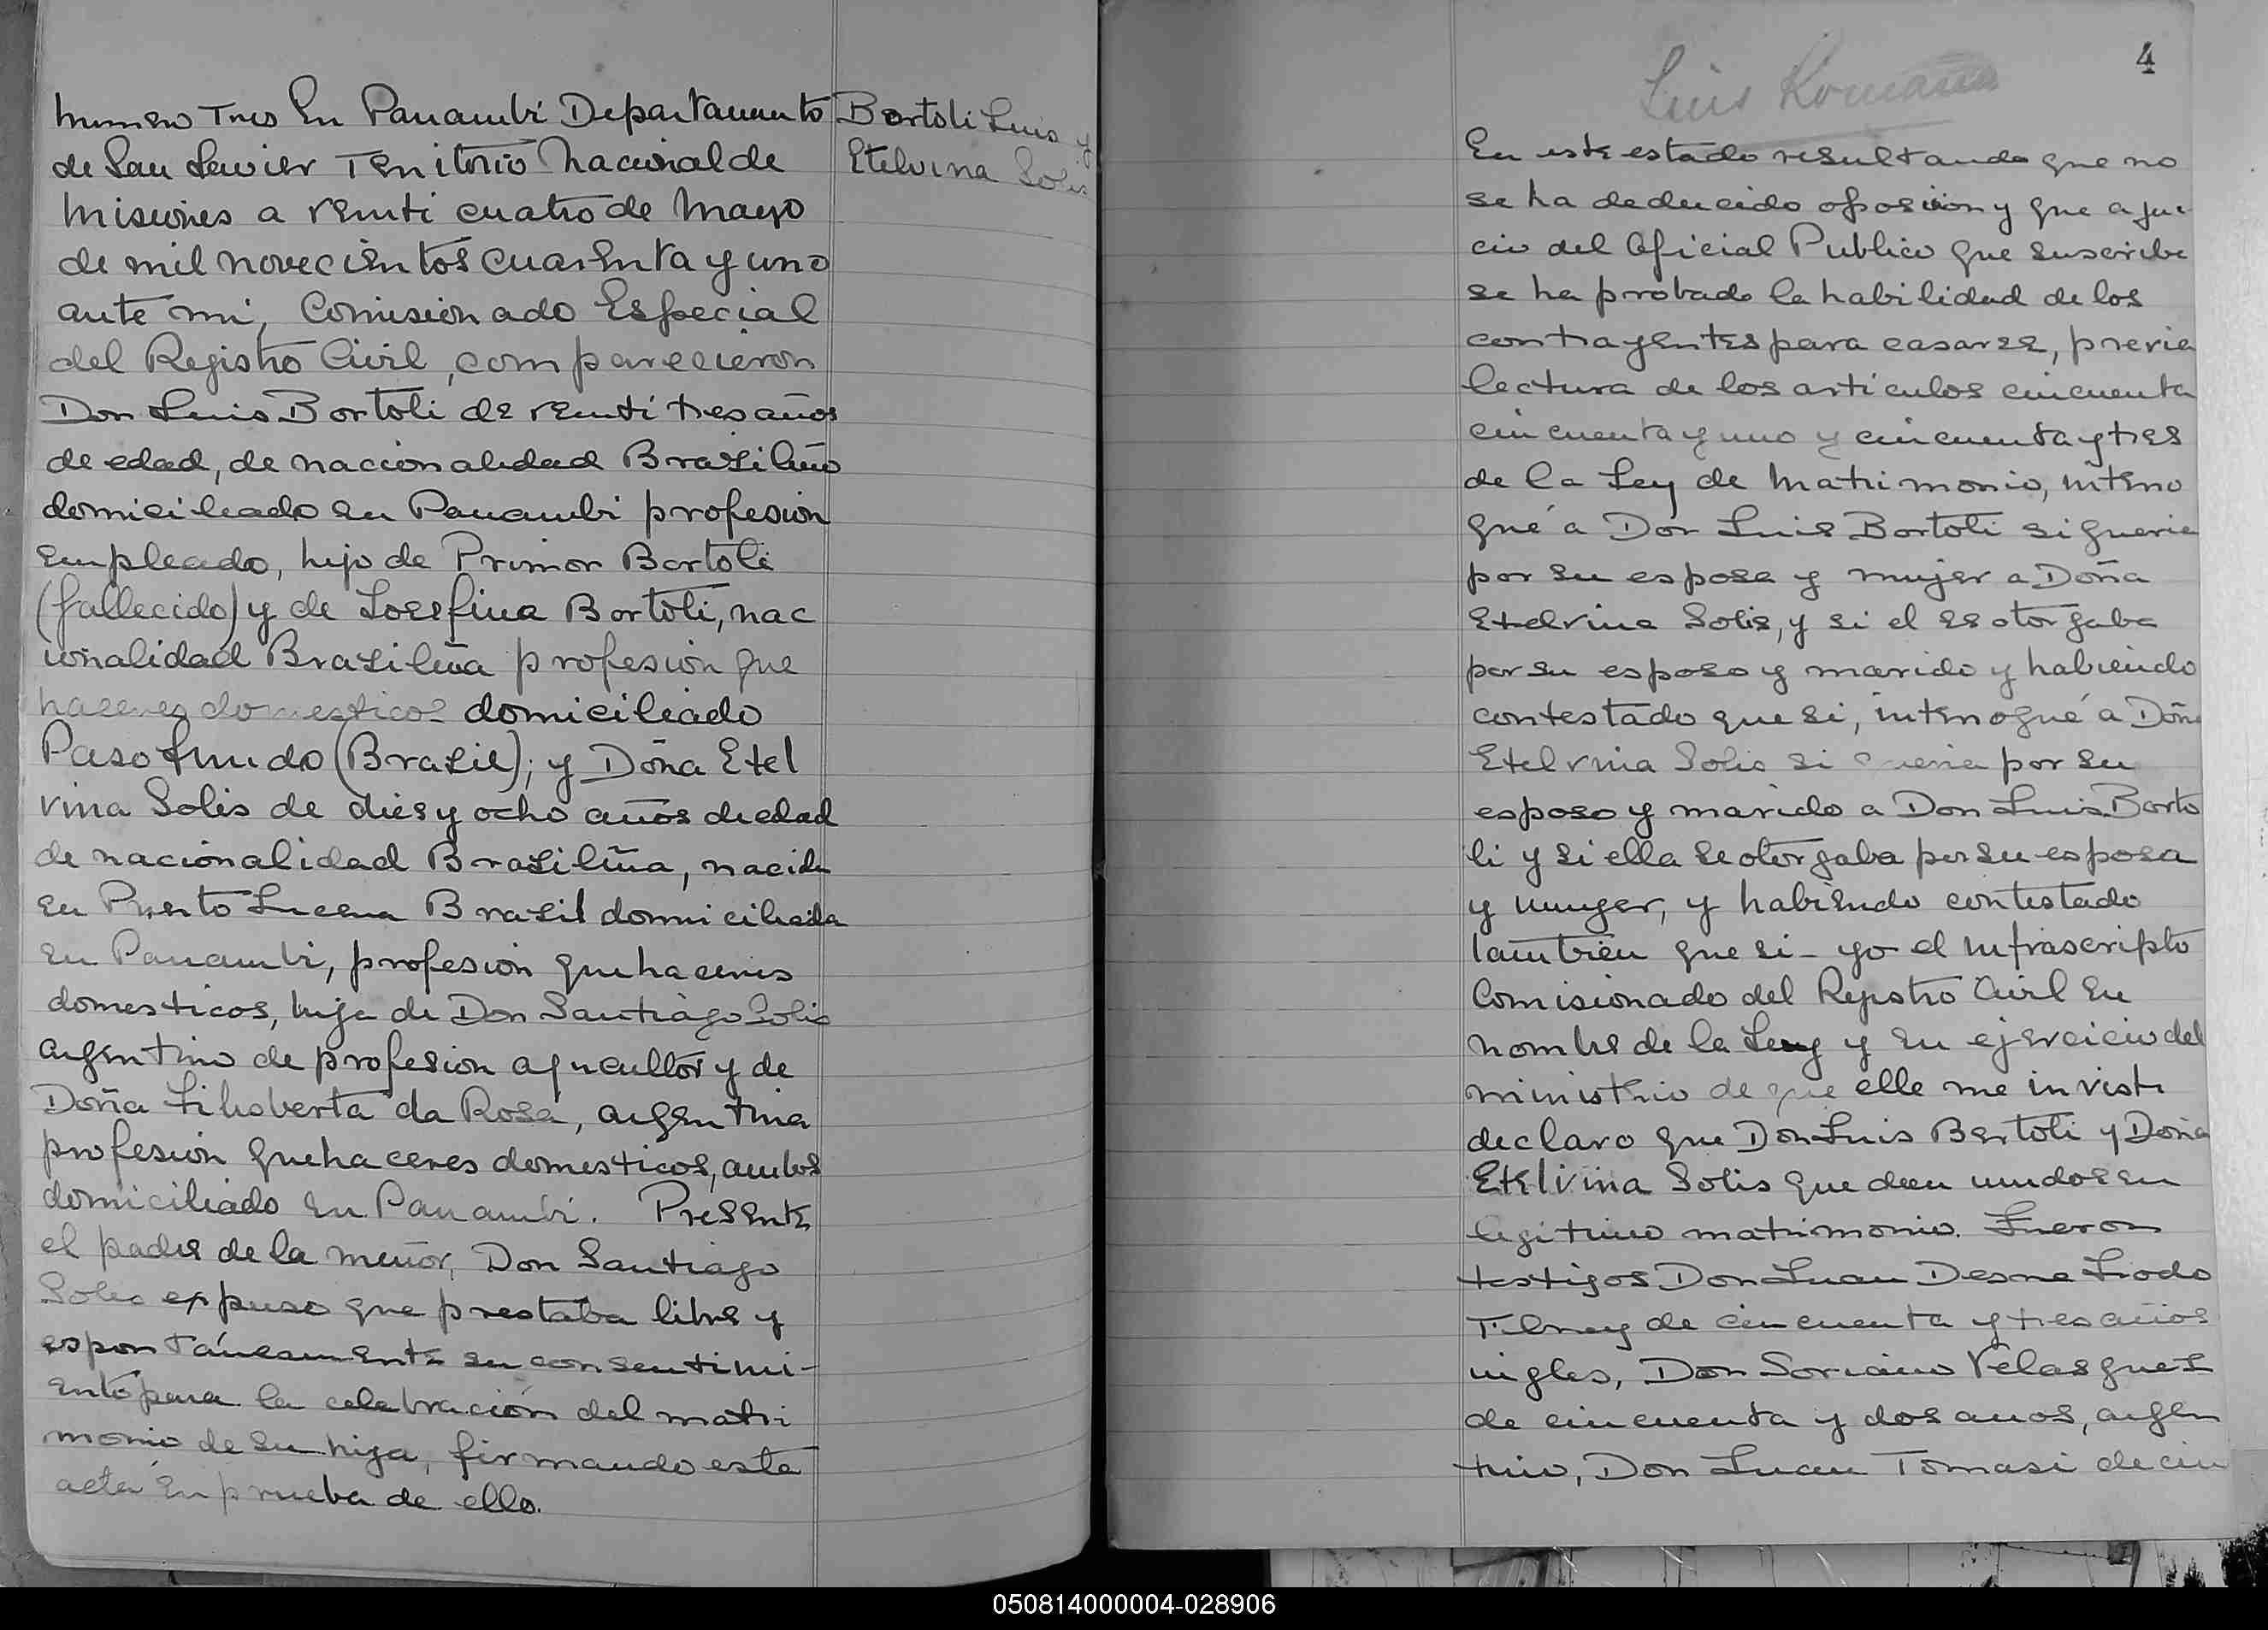 Numero Tres En Panambi Departamento
de San Javier Territorio Nacional de
Misiones a veinti cuatro de Mayo
de mil novecientos cuarenta y uno
ante mi, Comisionado Especial
del Registro Civil, comparecieron
Don Luis Bortoli de veinti tres años
de edad, de nacionalidad Brasileño
domiciliado en Panambi profesion
empleado, hijo de Primor Bortoli
(fallecido) y de Josefina Bortoli, nac
ionalidad Brasileña profesion que
haceres domesticos domiciliado
Paso fundo (Brazil); y Doña Etel
vina Solis de dies y ocho años de edad
de nacionalidad Brasileña, nacida
en Puerto Lucena Brazil domiciliada
en Panambi, profesion quehaceres
domesticos, hija de Don Santiago Solis
argentino de profesion agricultor y de
Doña da Rosa, argentina
profesion quehaceres domesticos, ambos
domiciliado en Panambi. Presente
el padre de la menor, Don Santiago
Solis expuso que prestaba libre y
espontáneamente su consentimi-
ento para la celebración del matri
monio de su hija, firmando esta
acta en prueba de ello.
Bortoli Luis y
Etelvina Solis
4
Luis Romaña
En este estado resultando que no
se ha deducido oposicion y que a jui
cio del Oficial Publico que suscribe
se ha probado la habilidad de los
contrayentes para casarse, previa
lectura de los articulos cincuenta
cincuenta y uno y cincuenta y tres
de la Ley de Matrimonio, interro
gué a Don Luis Bortoli si queria
por su esposa y mujer a Doña
Etelvina Solis, y si el se otorgaba
por su esposo y marido y habiendo
contestado que si, interrogué a Doña
Etelvina Solis si queria por su
esposo y marido a Don Luis Borto
li y si ella se otorgaba por su esposa
y muger, y habiendo contestado
tambien que si - yo el infrascripto
Comisionado del Registro Civil en
nombre de la Ley y en ejercicio del
ministrio de que elle me inviste
declaro que Don Luis Bertoli y Doña
Etelivina Solis queden unidos en
legitimo matrimonio. Fueron
testigos Don Juan
Tilney de cincuenta y tres años
ingles, Don Soriano Velasquez
de cincuenta y dos anos, argen
tino, Don Juan Tomasi de cin
050814000004-028906